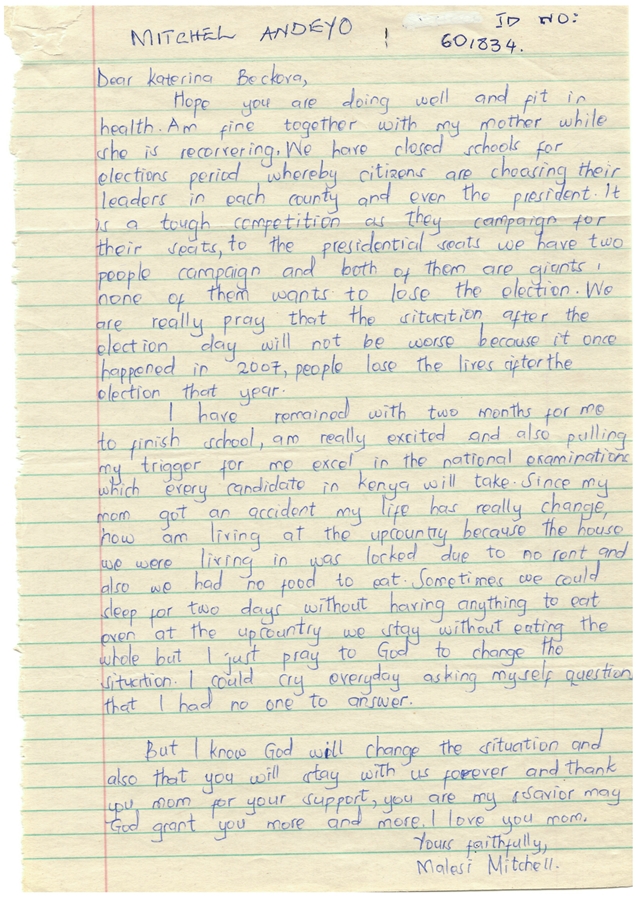 MITCHEL ANDEYO ! ID NO:
601834.
Dear Katerina Beckova,
Hope you are doing well and fit in
health. Am fine together with my mother while
she is recorrering. We have closed schools for
elections period whereby citizens are choosing their
leaders in each county and even the president. It
is a tough competition as they campaign for
their seats, to the presidential seats we have two
people campaign and both of them are giants,
none of them wants to lose the election. We
are really pray that the situation after the
election day will not be worse because it once
happened in 2007, people lose the lives after the
election that year.
I have remained with two months for me
to finish school, am really excited and also pulling
my trigger for me excel in the national examinations
which every candidate in Kenya will take. Since my
mom got an accident my life has really change,
now am living at the upcountry because the house
we were living in was locked due to no rent and
also we had no food to eat. Sometimes we could
sleep for two days without having anything to eat
even at the upcountry we stay without eating the
whole but I just pray to God to change the
situation. I could cry everyday asking myself question
that I had no one to answer.
But I know God will change the situation and
also that you will stay with us forever and thank
you mom for your support, you are my ssavior may
God grant you more and more. I love you mom.
Yours faithfully,
Malesi Mitchell.